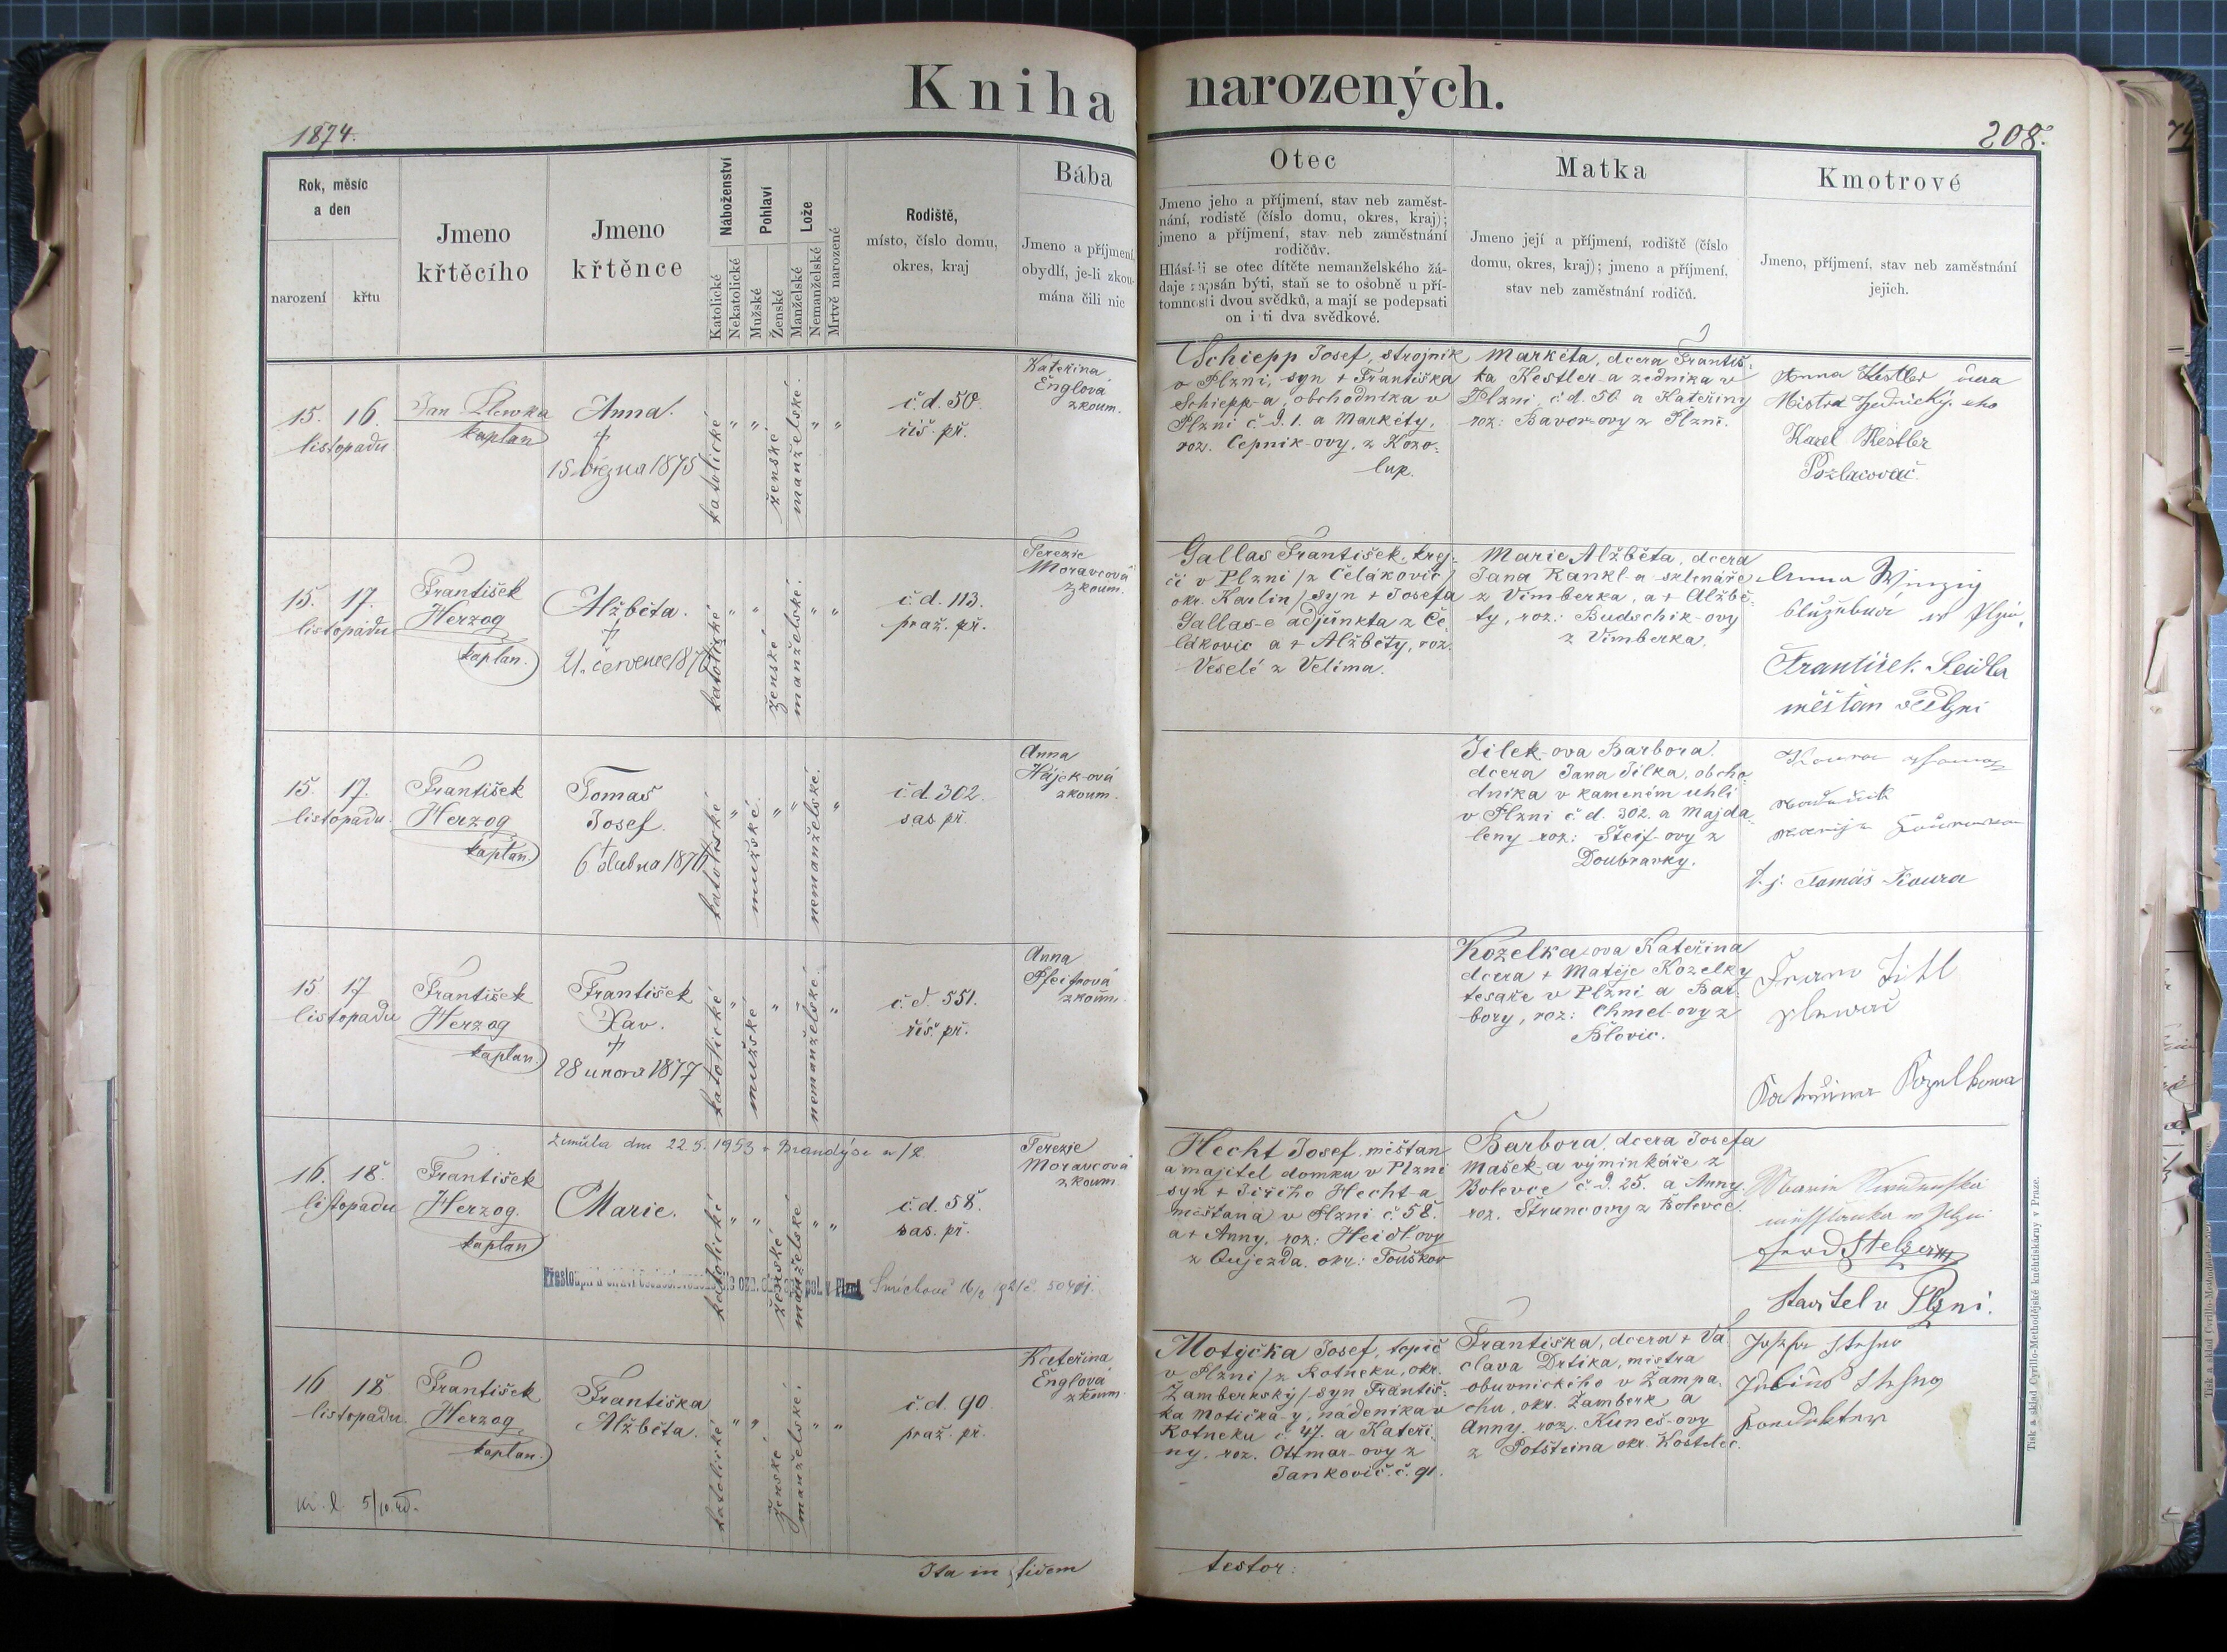 Kniha narozených.
1874.
208.
Rok, měsíc
a den
narození
křtu
Jmeno
křtěcího
Jmeno
křtěnce
Náboženství
Katolické
Nekatolické
Pohlaví
Mužské
Ženské
Lože
Manželské
Nemanželské
Mrtvě narozené
Rodiště,
místo, číslo domu,
okres, kraj
Bába
Jmeno a příjmení,
obydlí, je-li zkou-
mána čili nic
Otec
Jmeno jeho a příjmení, stav neb zaměst-
nání, rodistě (číslo domu, okres, kraj);
jmeno a příjmení, stav neb zaměstnání
rodičův.
Hlásí-li se otec dítěte nemanželského žá-
daje zapsán býti, staň se to osobně u pří-
tomnosti dvou svědků, a mají se podepsati
on i ti dva svědkové.
Matka
Jmeno její a příjmení, rodiště (číslo
domu, okres, kraj); jmeno a příjmení,
stav neb zaměstnání rodičů.
Kmotrové
Jmeno, příjmení, stav neb zaměstnání
jejich.
15. 16.
listopadu
Jan
kaplan
Anna.
†
15 března 1875
katolické
" "
ženské
manželské.
" "
č. d. 50.
říš. př.
Kateřina
Englová
zkoum.
Schiepp Josef, strojník
v Plzni, syn † Františka
Schiepp-a, obchodníka v
Plzni č. d. 1. a Markéty,
roz. Cepnik-ovy, z Kozo-
lup.
Markéta, dcera Františ-
ka Kestler-a zedníka v
Plzni, č. d. 50. a Kateřiny
roz: Bavor-ovy z Plzni.
Anna Kestler
Karel Kestler
Pozlacovač.
15. 17.
listopadu
František
Herzog
kaplan.
Alžběta.
†
21. července 1876
katolické
" "
ženské
manželské.
" "
č. d. 113.
praž. př.
Terezie
Moravcová
zkoum.
Gallas František, krej-
čí v Plzni /z Čelákovic,
okr. Karlín/ syn † Josefa
Gallas-e adjunkta z Če-
lákovic a † Alžběty, roz.
Veselé z Velíma.
Marie Alžběta, dcera
Jana Rankl-a sklenáře
z Vimberka, a † Alžbě-
ty, roz.: Budschik-ovy
z Vimberka.
Anna Winzig
František Seidler
měšťan v Plzni
15. 17.
listopadu
František
Herzog
kaplan.
Tomaš
Josef.
†
6 dubna 1876
katolické
"
mužské.
" "
nemanželské.
"
č. d. 302.
sas. př.
Anna
Hájek-ová
zkoum.
Jilek-ova Barbora.
dcera Jana Jilka, obcho-
dníka v kameném uhlí
v Plzni č. d. 302. a Majda-
leny roz: Šteif-ovy z
Doubravky.
t. j. Tomáš Koura
15 17
listopadu
František
Herzog
kaplan.
František
Xav.
†
28 unora 1877
katolické
"
mužské
"
nemanželské.
"
č. d. 551.
říš. př.
Anna
zkoum.
Kozelka-ova Kateřina
dcera † Matěje Kozelky
tesaře v Plzni a Bar-
bory, roz: Chmel-ovy z
Blovic.
zemřela dne 22.5.1953 v Brandýse n/L.
16. 18.
listopadu
František
Herzog.
kaplan
Marie.
katolické
" "
ženské
manželské
" "
č. d. 58.
sas. př.
Terezie
Moravcová
zkoum.
Hecht Josef, měšťan
a majitel domku v Plzni
syn † Jiřího Hecht-a
měšťana v Plzni č. 58.
a † Anny, roz: Heidl-ovy
z Oujezda, okr: Touškov
Barbora, dcera Josefa
Mašek-a výminkáře z
Bolevce č. d. 25. a Anny
roz. Štruncovy z Bolevce.
Marie
Ferd Stelzer
stavitel v Plzni.
16 18
listopadu.
František
Herzog
kaplan.
Františka
Alžběta.
katolické
" "
ženské
manželské.
" "
č. d. 90
praž. př.
Kateřina
Englová
zkoum.
Motyčka Josef, topič
v Plzni /z Rotneku, okr.
Žamberkský/ syn Františ-
ka Motička-y, nádeníka v
Rotneku č. 47. a Kateři-
ny, roz. Ottmar-ovy z
Jankovič. č. 91.
Františka, dcera † Vá-
clava Drtika, mistra
obuvnického v Žampa-
chu, okr. Žamberk, a
Anny, roz. Kuneš-ovy
z Potšteina okr. Kostelec.
Ita in fidem
testor:
Tisk a sklad Cyrillo-Methodějské kněhtiskárny v Praze.